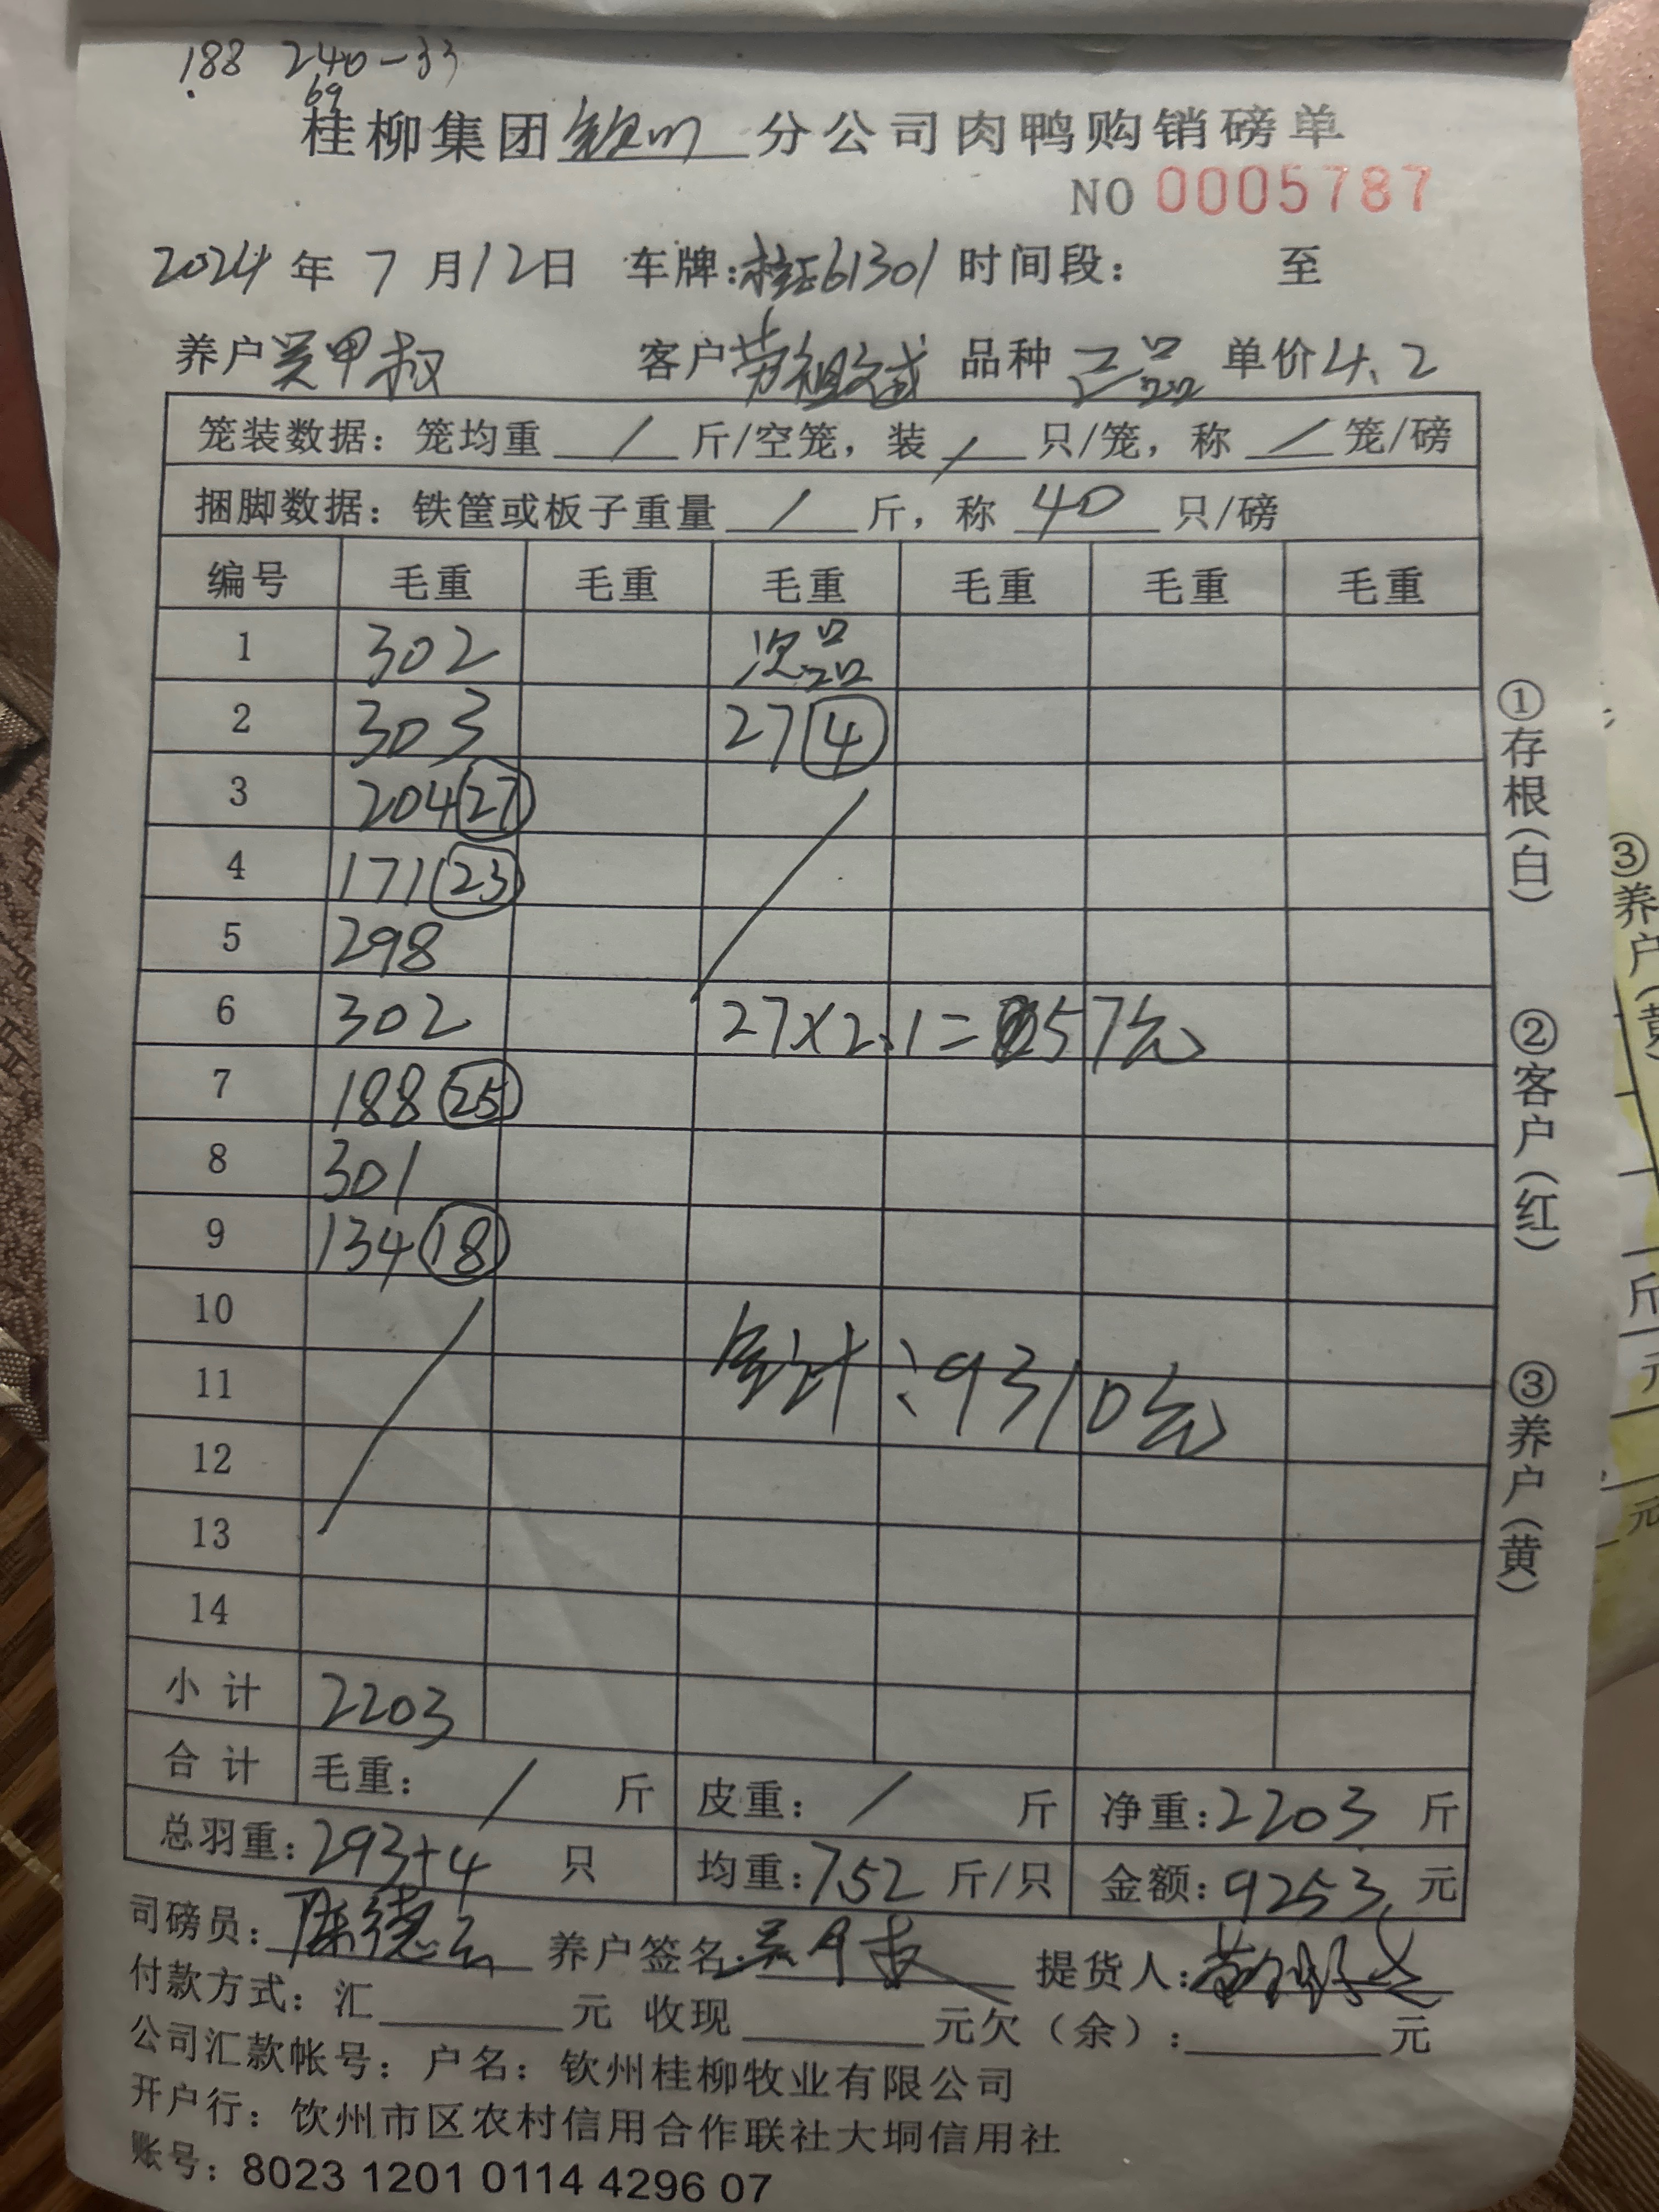 188 240-33
69
桂柳集团钦州分公司肉鸭购销磅单
NO 0005787
2024年7月12日 车牌:桂E61301 时间段: 至
养户吴甲叔 客户劳祖文武 品种 正品 单价4.2
笼装数据:笼均重 / 斤/空笼,装 / 只/笼,称 / 笼/磅
捆脚数据:铁筐或板子重量 / 斤,称 40 只/磅
编号 毛重 毛重 毛重 毛重 毛重 毛重
1 302 次品
2 303 27 4
3 204 27
4 171 23
5 298
6 302 27×2.1=57元
7 188 25
8 301
9 134 18
10
11 合计:9310元
12
13
14
小计 2203
合计 毛重: / 斤 皮重: / 斤 净重:2203 斤
总羽重:293+4 只 均重:7.52 斤/只 金额:9253 元
司磅员:陈德 养户签名:吴甲叔 提货人:
付款方式:汇 元 收现 元欠(余): 元
公司汇款帐号:户名:钦州桂柳牧业有限公司
开户行:钦州市区农村信用合作联社大垌信用社
账号:8023 1201 0114 4296 07
①存根(白) ②客户(红) ③养户(黄)
③养户(黄)
斤
元
元